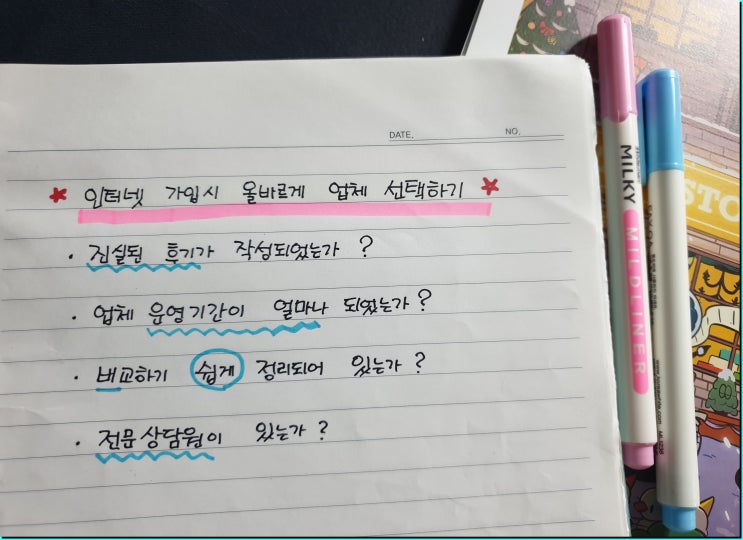 DATE. NO.
* 인터넷 가입시 올바르게 업체 선택하기 *
· 진실된 후기가 작성되었는가 ?
· 업체 운영기간이 얼마나 되었는가 ?
· 비교하기 쉽게 정리되어 있는가 ?
· 전문상담원이 있는가 ?
MILKY MILDLINER
STO